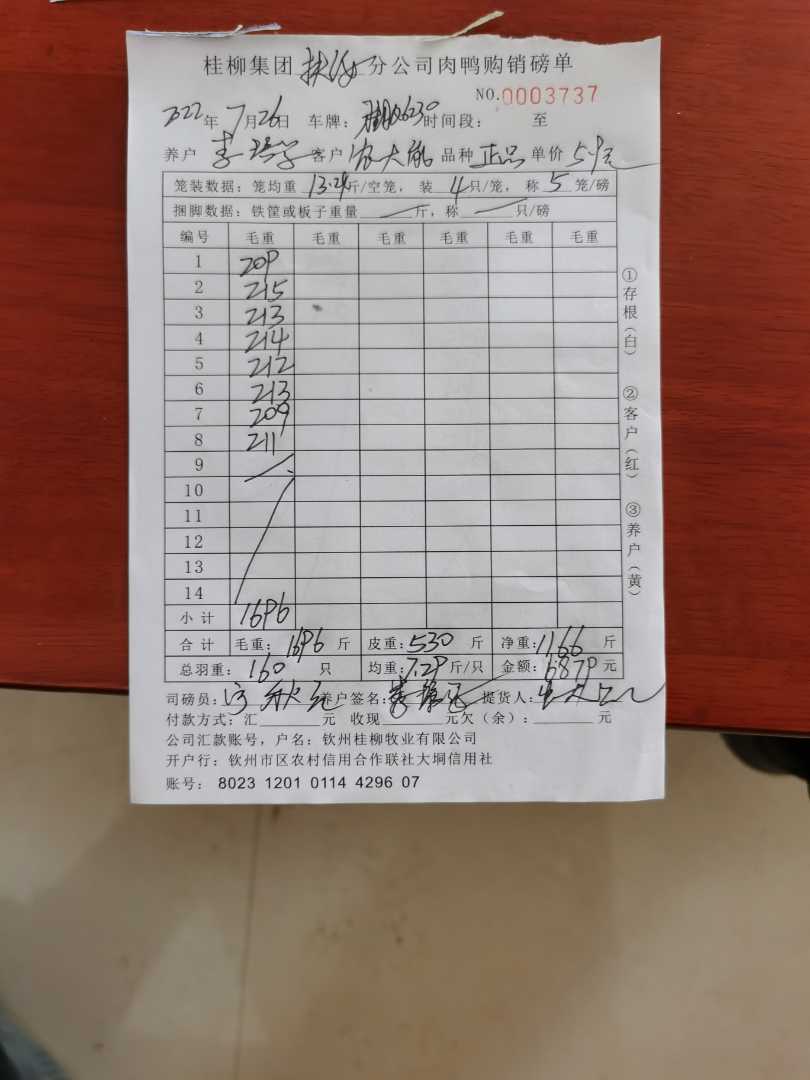 桂柳集团 扶绥 分公司肉鸭购销磅单
NO.0003737
2022年7月26日 车牌: 时间段: 至
养户 客户 农大 品种 正品 单价 5.9元
笼装数据: 笼均重 13.24斤/空笼, 装 4只/笼, 称 5 笼/磅
捆脚数据: 铁筐或板子重量 斤, 称 只/磅
编号 毛重 毛重 毛重 毛重 毛重 毛重
1 209
2 215
3 213
4 214
5 212
6 213
7 209
8 211
9
10
11
12
13
14
小计 1696
合计 毛重: 1696 斤 皮重: 530 斤 净重: 1166 斤
总羽重: 160 只 均重: 7.29斤/只 金额: 6879元
司磅员: 养户签名: 提货人:
付款方式: 汇 元 收现 元欠(余): 元
公司汇款账号, 户名: 钦州桂柳牧业有限公司
开户行: 钦州市区农村信用合作联社大垌信用社
账号: 8023 1201 0114 4296 07
①存根(白)
②客户(红)
③养户(黄)